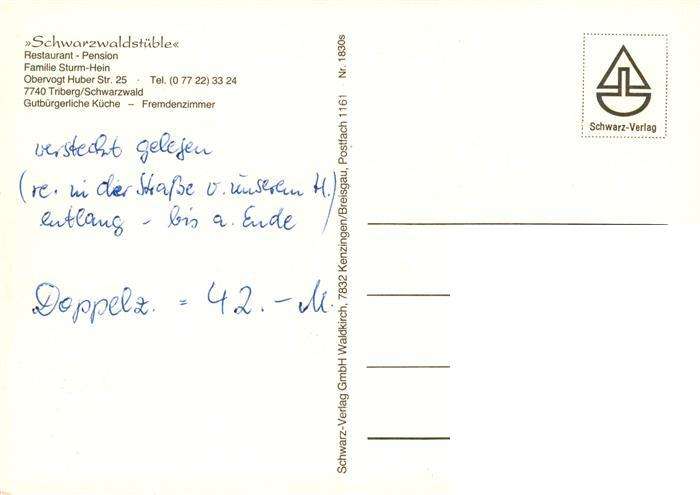 »Schwarzwaldstüble«
Restaurant - Pension
Familie Sturm-Hein
Obervogt Huber Str. 25 · Tel. (0 77 22) 33 24
7740 Triberg/Schwarzwald
Gutbürgerliche Küche – Fremdenzimmer
versteckt gelegen
(re. in der Straße v. unserem H.)
entlang - bis a. Ende
Doppelz. = 42.- M.
Schwarz-Verlag GmbH Waldkirch, 7832 Kenzingen/Breisgau, Postfach 1161 Nr. 1830s
Schwarz-Verlag